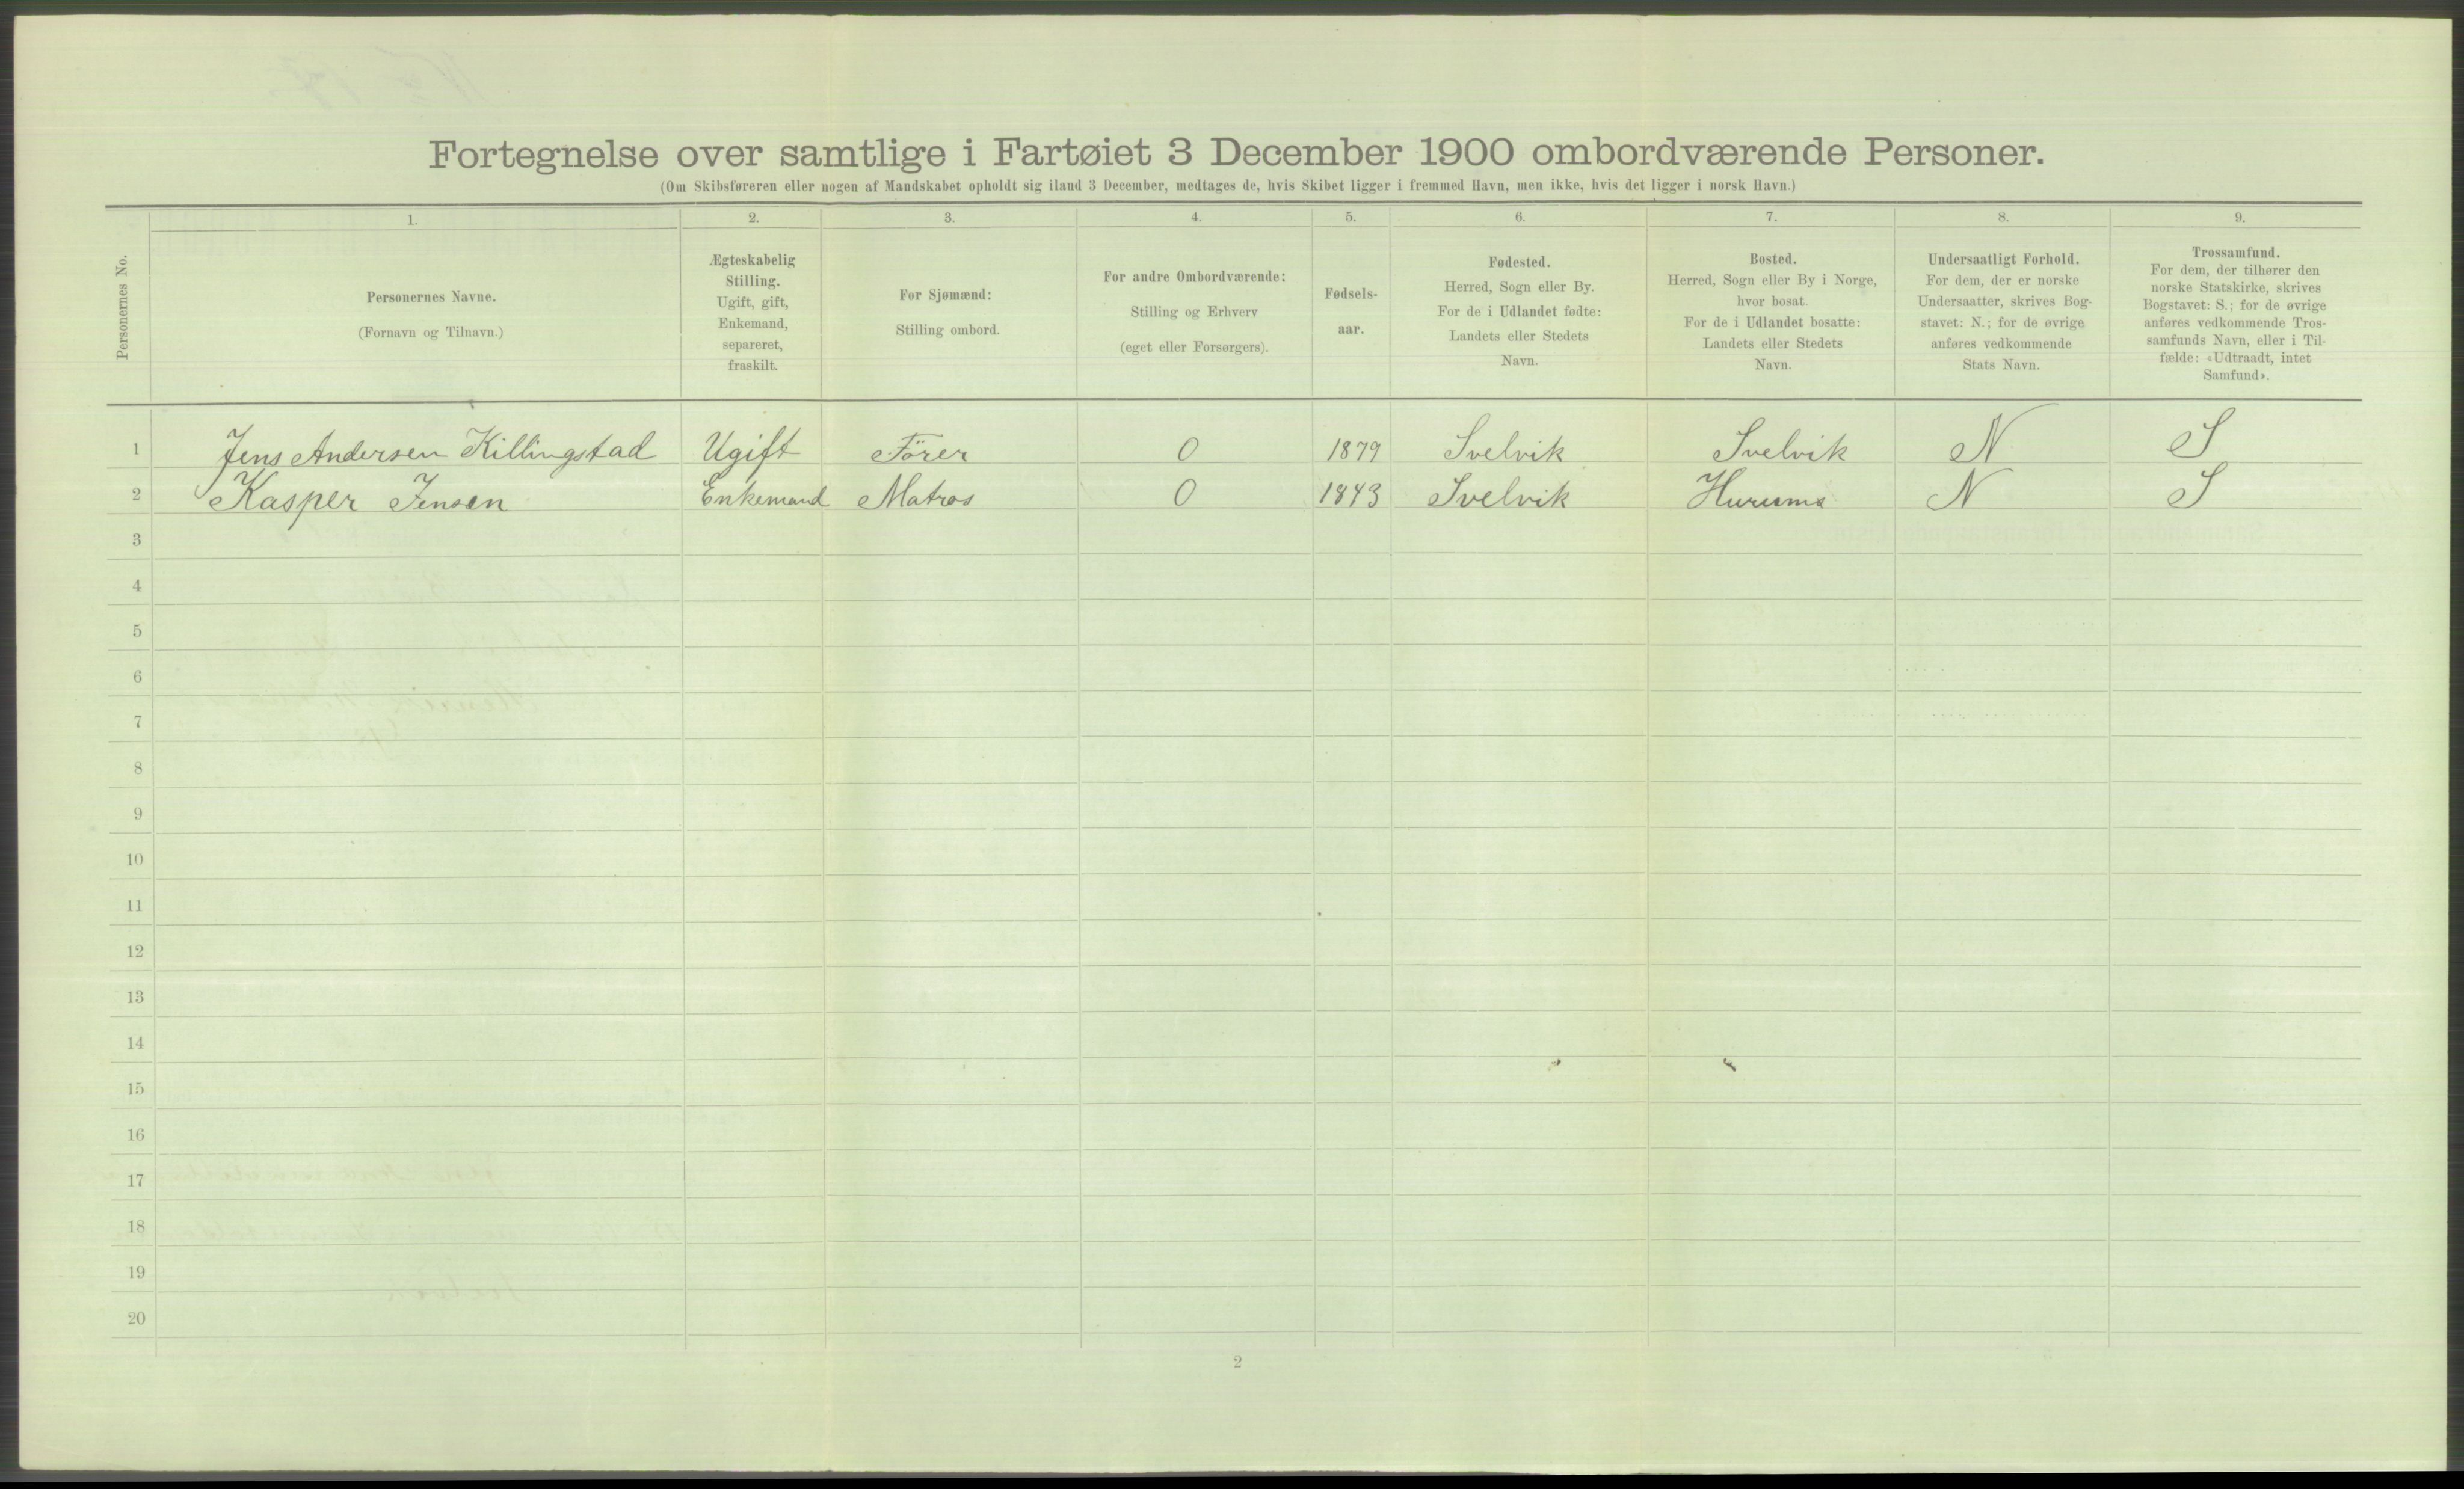 Fortegnelse over samtlige i Fartøiet 3 December 1900 ombordværende Personer.
(Om Skibsføreren eller nogen af Mandskabet opholdt sig iland 3 December, medtages de, hvis Skibet ligger i fremmed Havn, men ikke, hvis det ligger i norsk Havn.)
Personernes No.
1.
Personernes Navne.
(Fornavn og Tilnavn.)
2.
Ægteskabelig
Stilling.
Ugift, gift,
Enkemand,
separeret,
fraskilt.
3.
For Sjømænd:
Stilling ombord.
4.
For andre Ombordværende:
Stilling og Erhverv
(eget eller Forsørgers).
5.
Fødsels-
aar.
6.
Fødested.
Herred, Sogn eller By.
For de i Udlandet fødte:
Landets eller Stedets
Navn.
7.
Bosted.
Herred, Sogn eller By i Norge,
hvor bosat.
For de i Udlandet bosatte:
Landets eller Stedets
Navn.
8.
Undersaatligt Forhold.
For dem, der er norske
Undersaatter, skrives Bog-
stavet: N.; for de øvrige
anføres vedkommende
Stats Navn.
9.
Trossamfund.
For dem, der tilhører den
norske Statskirke, skrives
Bogstavet: S.; for de øvrige
anføres vedkommende Tros-
samfunds Navn, eller i Til-
fælde: «Udtraadt, intet
Samfund».
1 Jens Andersen Killingstad Ugift Förer 0 1879 Svelvik Svelvik N S
2 Kasper Jensen Enkemand Matros 0 1843 Svelvik N S
3
4
5
6
7
8
9
10
11
12
13
14
15
16
17
18
19
20
2